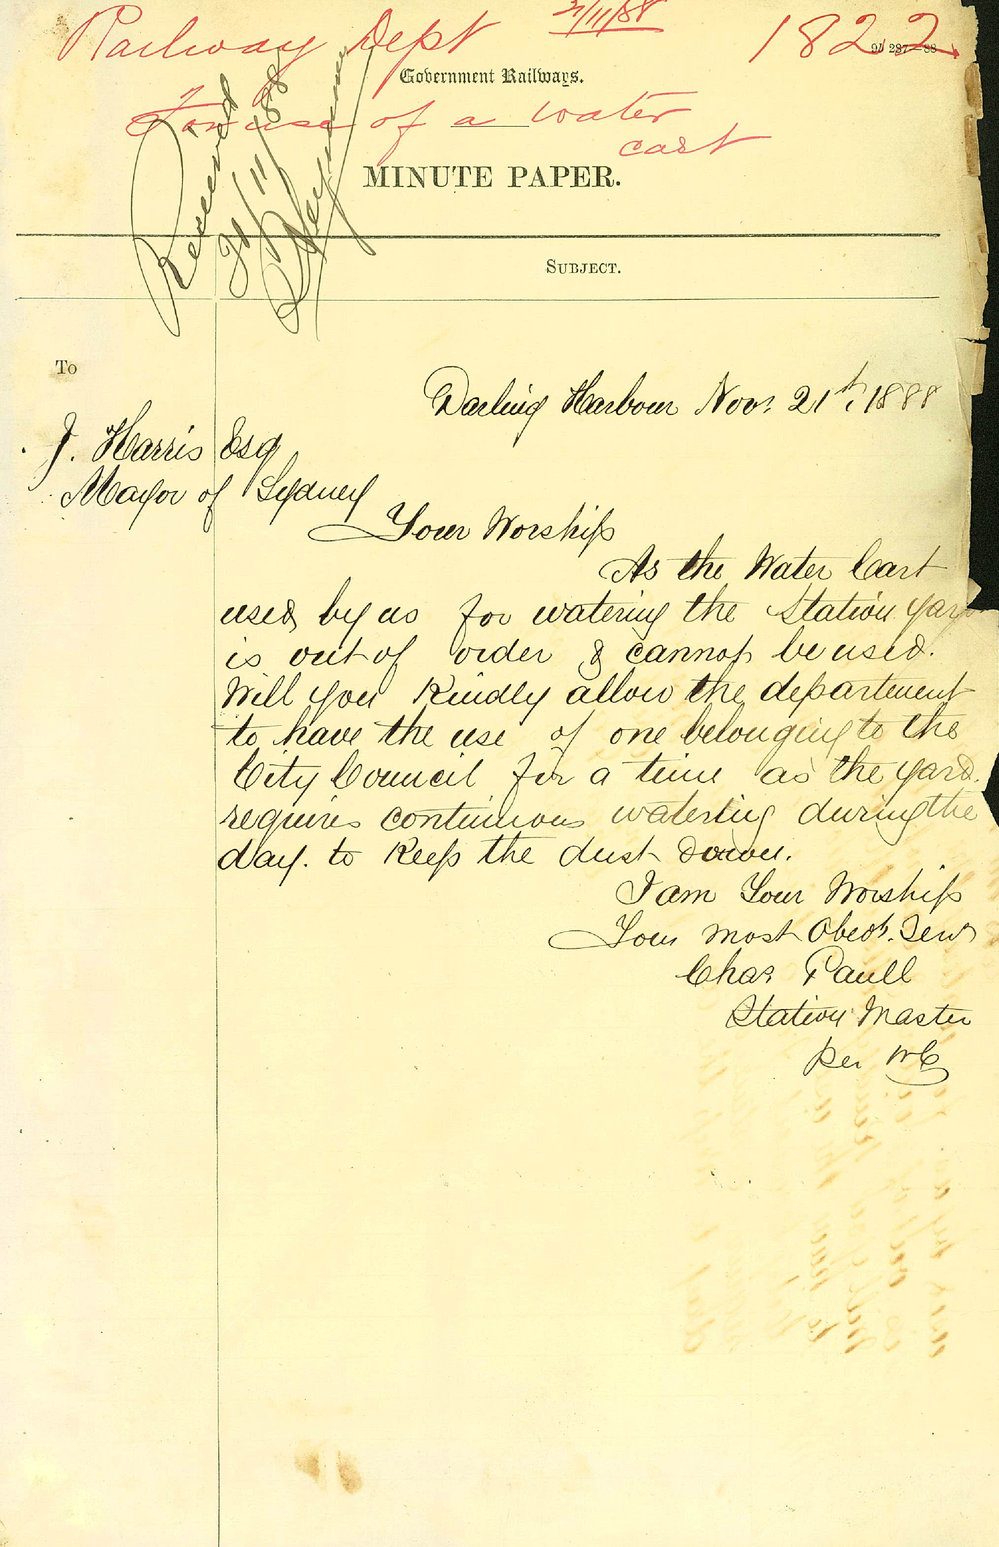 Railway Dept 21/11/88 1822
9D 287—88
Government Railways.
For use of a water
cart
MINUTE PAPER.
Received
21/11/88
SUBJECT.
To
Darling Harbour Nov: 21th, 1888
J. Harris Esq
Mayor of Sydney
Your Worship
As the Water Cart
used by us for watering the Station Yard
is out of order & cannot be used.
Will you Kindly allow the department
to have the use of one belonging to the
City Council for a time as the yard
requires continuous watering during the
day. to Keep the dust down.
I am Your Worship
Your most Obedt. Serv
Chas Paull
Station Master
per WC